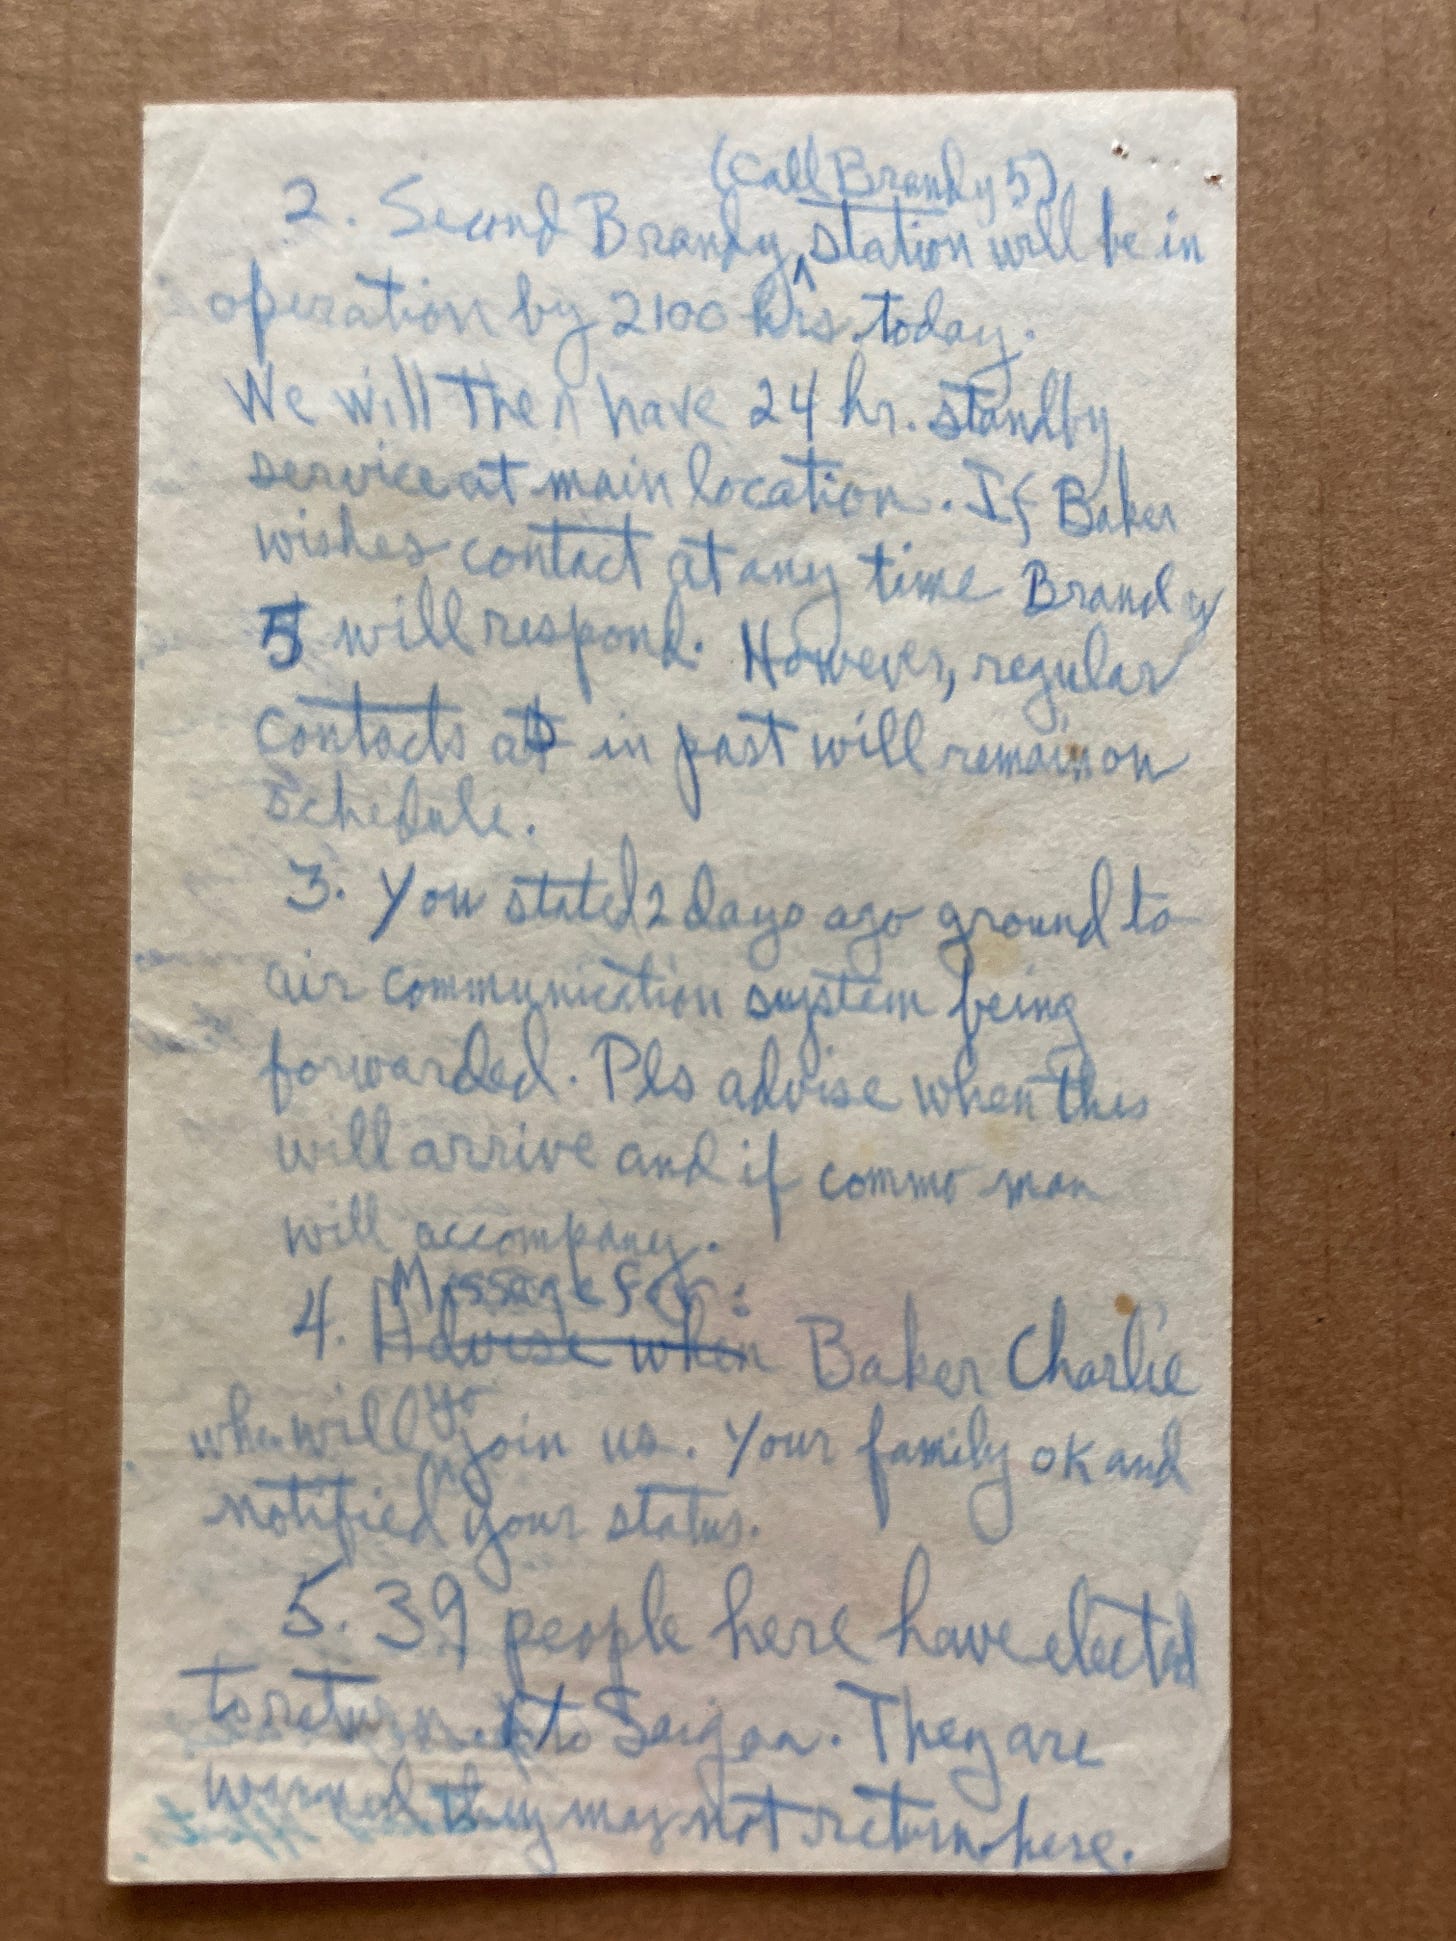 (Call Brandy 5)
2. Second Brandy ^ station will be in
operation by 2100 hrs. today.
We will then have 24 hr. standby
service at main location. If Baker
wishes contact at any time Brandy
5 will respond. However, regular
contacts as in past will remain on
schedule.
3. You stated 2 days ago ground to
air communication system being
forwarded. Pls advise when this
will arrive and if commo man
will accompany.
Message for:
4. Advise when Baker Charlie
who will join us. Your family ok and
notified your status.
5. 39 people here have elected
to return to Saigon. They are
warned they may not return here.